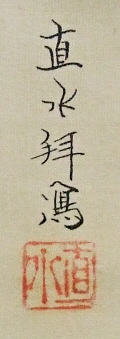 直水拜寫
直水